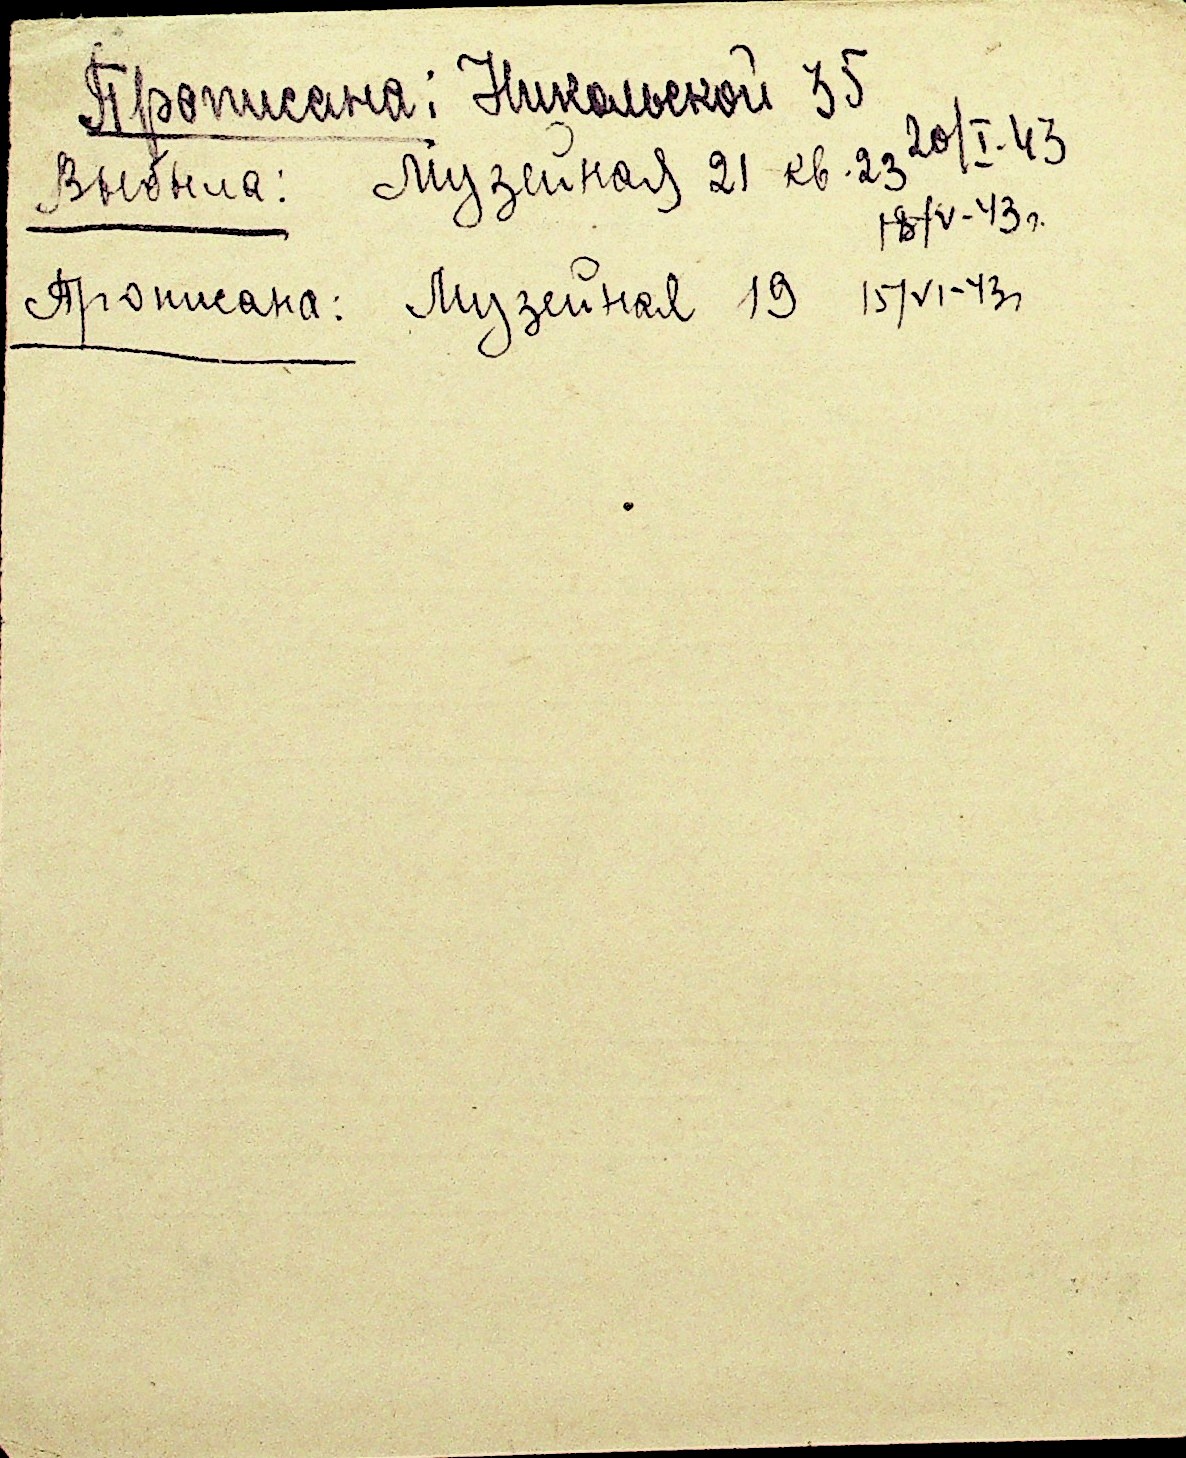 Прописана: Никольской 35
20/I-43
Выбыла: Музейная 21 кв. 23
18/V-43г.
Прописана: Музейная 19 15/VI-43г